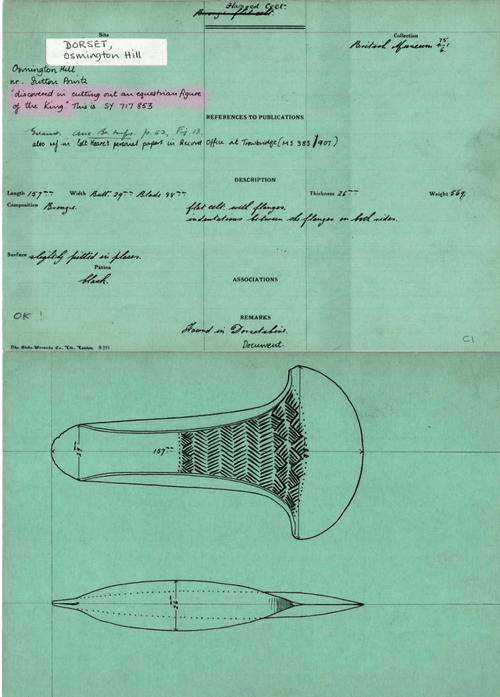 Flanged Celt.
Bronze flat celt.
Site
DORSET,
Osmington Hill
Collection
British Museum
Osmington Hill
nr. Sutton Pointz
"discovered in cutting out an equestrian figure
of the King" This is SY 717 853
REFERENCES TO PUBLICATIONS
Evans, Anc. Br. Imps. p. 53, Fig. 13.
also ref in Colt Hoare's personal papers in Record Office at Trowbridge (MS 383/907)
DESCRIPTION
Length 157mm Width Butt. 29mm Blade 98mm Thickness 26mm Weight
Composition Bronze. flat celt with flanges,
indentations between the flanges on both sides.
Surface slightly pitted in places.
Patina
black.
ASSOCIATIONS
OK!
REMARKS
Found in Dorsetshire.
Document
C1
157mm
26mm